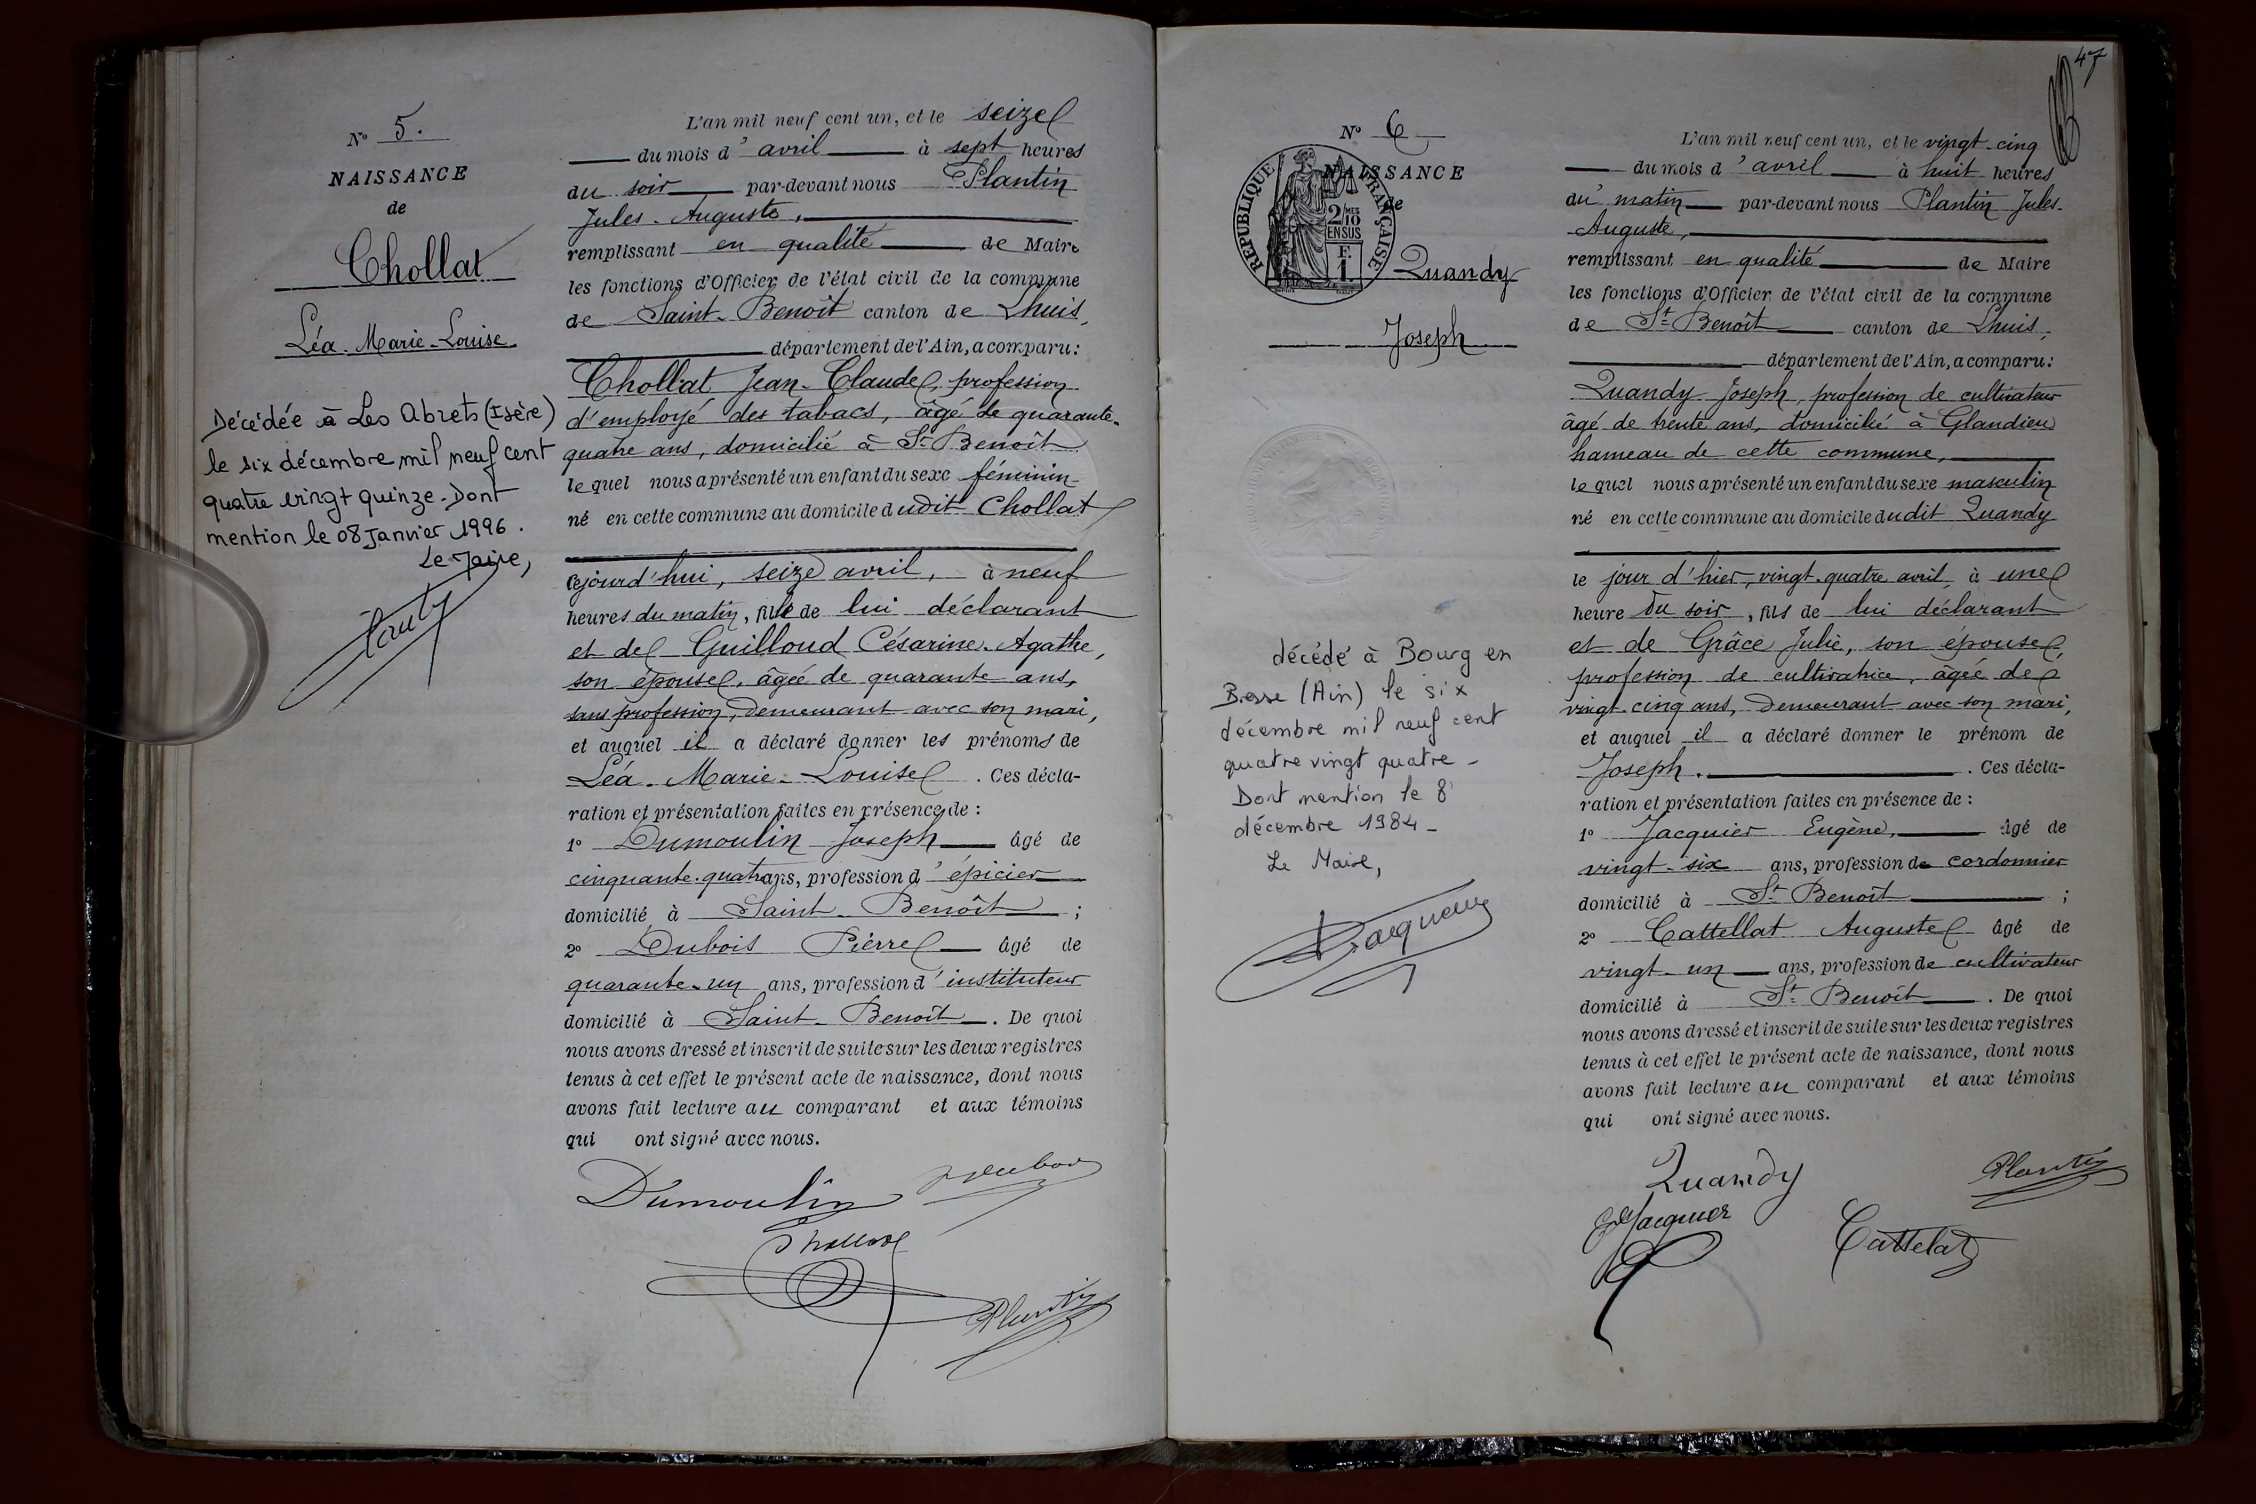 N° 5.
NAISSANCE
de
Chollat
Léa-Marie-Louise
Décédée à Les Abrets (Isère)
le six décembre mil neuf cent
quatre vingt quinze. Dont
mention le 08 Janvier 1996.
Le Maire,
L'an mil neuf cent un, et le seize
du mois d'avril à sept heures
du soir par-devant nous Plantin
Jules-Auguste,
remplissant en qualité de Maire
les fonctions d'Officier de l'état civil de la commune
de Saint-Benoît canton de Lhuis,
département de l'Ain, a comparu:
Chollat Jean-Claude, profession
d'employé des tabacs, âgé de quarante-
quatre ans, domicilié à St Benoît
lequel nous a présenté un enfant du sexe féminin
né en cette commune au domicile dudit Chollat
cejourd'hui, seize avril, à neuf
heures du matin, fille de lui déclarant
et de Guilloud Césarine-Agathe,
son épouse, âgée de quarante ans,
sans profession, demeurant avec son mari,
et auquel il a déclaré donner les prénoms de
Léa-Marie-Louise. Ces décla-
ration et présentation faites en présence de:
1° Dumoulin Joseph âgé de
cinquante-quatre ans, profession d'épicier
domicilié à Saint-Benoît;
2° Dubois Pierre âgé de
quarante-un ans, profession d'instituteur
domicilié à Saint-Benoît. De quoi
nous avons dressé et inscrit de suite sur les deux registres
tenus à cet effet le présent acte de naissance, dont nous
avons fait lecture au comparant et aux témoins
qui ont signé avec nous.
Dumoulin
Dubois
Chollat
Plantin
47
N° 6
NAISSANCE
de
RÉPUBLIQUE FRANÇAISE
2/10 MES
EN SUS
F.
1
Quandy
Joseph
décédé à Bourg en
Bresse (Ain) le six
décembre mil neuf cent
quatre vingt quatre -
Dont mention le 8
décembre 1984 -
Le Maire,
L'an mil neuf cent un, et le vingt-cinq
du mois d'avril à huit heures
du matin par-devant nous Plantin Jules-
Auguste,
remplissant en qualité de Maire
les fonctions d'Officier de l'état civil de la commune
de St Benoît canton de Lhuis,
département de l'Ain, a comparu:
Quandy Joseph, profession de cultivateur
âgé de trente ans, domicilié à Glandieu
hameau de cette commune,
lequel nous a présenté un enfant du sexe masculin
né en cette commune au domicile dudit Quandy
le jour d'hier, vingt-quatre avril à une
heure du soir, fils de lui déclarant
et de Grâce Julie, son épouse,
profession de cultivatrice, âgée de
vingt-cinq ans, demeurant avec son mari,
et auquel il a déclaré donner le prénom de
Joseph. Ces décla-
ration et présentation faites en présence de:
1° Jacquier Eugène, âgé de
vingt-six ans, profession de cordonnier
domicilié à St Benoît;
2° Cattellat Auguste âgé de
vingt-un ans, profession de cultivateur
domicilié à St Benoît. De quoi
nous avons dressé et inscrit de suite sur les deux registres
tenus à cet effet le présent acte de naissance, dont nous
avons fait lecture au comparant et aux témoins
qui ont signé avec nous.
Quandy
Plantin
Jacquier
Cattelat